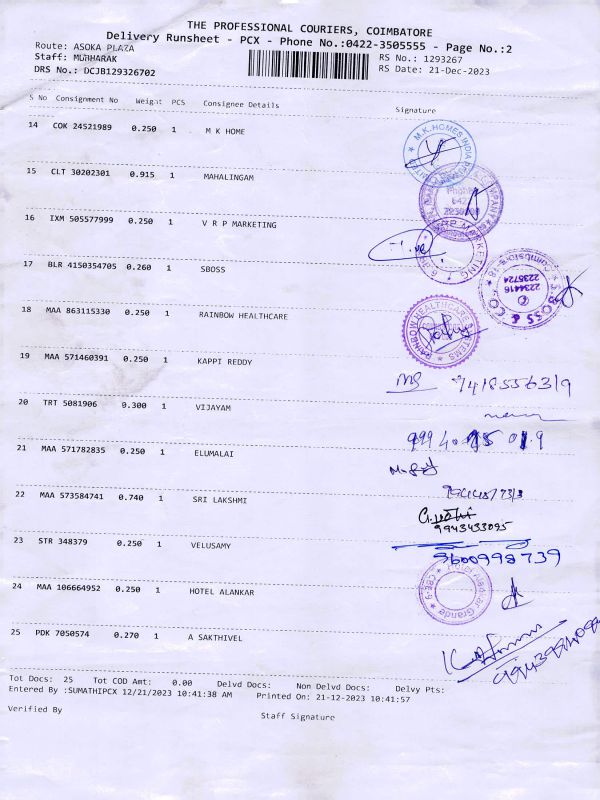 THE PROFESSIONAL COURIERS, COIMBATORE
Delivery Runsheet - PCX - Phone No.:0422-3505555 - Page No.:2
Route: ASOKA PLAZA
RS No.: 1293267
Staff: MUBHARAK
RS Date: 21-Dec-2023
DRS No.: DCJB129326702
S No Consignment No Weight PCS Consignee Details Signature
14 COK 24521989 0.250 1 M K HOME
15 CLT 30202301 0.915 1 MAHALINGAM
16 IXM 505577999 0.250 1 V R P MARKETING
17 BLR 4150354705 0.260 1 SBOSS
2234416
2235724
OSS & CO
18 MAA 863115330 0.250 1 RAINBOW HEALTHCARE
RAINBOW HEALTHCARE SYSTEMS
19 MAA 571460391 0.250 1 KAPPI REDDY
20 TRT 5081906 0.300 1 VIJAYAM
21 MAA 571782835 0.250 1 ELUMALAI
22 MAA 573584741 0.740 1 SRI LAKSHMI
9943433095
23 STR 348379 0.250 1 VELUSAMY
9600998739
24 MAA 106664952 0.250 1 HOTEL ALANKAR
25 PDK 7050574 0.270 1 A SAKTHIVEL
Tot Docs: 25 Tot COD Amt: 0.00 Delvd Docs: Non Delvd Docs: Delvy Pts:
Entered By :SUMATHIPCX 12/21/2023 10:41:38 AM Printed On: 21-12-2023 10:41:57
Verified By
Staff Signature